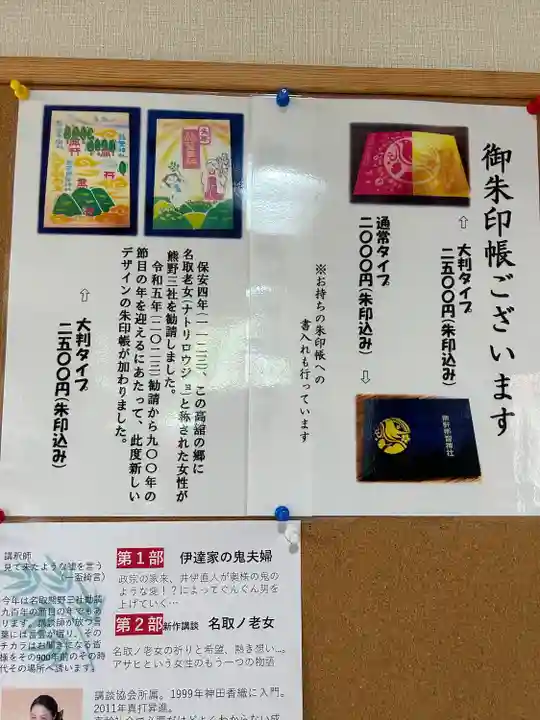 御朱印帳ございます
⇧ 大判タイプ
二五〇〇円(朱印込み)
通常タイプ
二〇〇〇円(朱印込み) ⇨
熊野那智神社
※お持ちの朱印帳への
書入れも行っています
保安四年(一一二三)、この高舘の郷に
名取老女(ナトリロウジョ)と称された女性が
熊野三社を勧請しました。
令和五年(二〇二三)勧請から九〇〇年の
節目の年を迎えるにあたって、此度新しい
デザインの朱印帳が加わりました。
⇧ 大判タイプ
二五〇〇円(朱印込み)
講釈師
見て来たような嘘を言う
第1部 伊達家の鬼夫婦
政宗の家来、井伊直人が奥様の鬼の
ような愛!?によってぐんぐん男を
上げていく…
第2部 新作講談 名取ノ老女
名取ノ老女の祈りと希望、熱き想い…。
アサヒという女性のもう一つの物語
今年は名取熊野三社勧請
九百年の節目の年でもあ
ります。講談師が放つ言
葉には言霊が宿り、その
チカラはお聞きになる皆
様をその900年前のその時
代その場所へ誘います。
講談協会所属。1999年神田香織に入門。
2011年真打昇進。